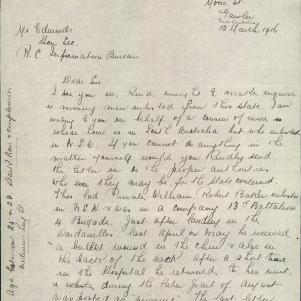 Moore St.
Gawler
13 March 1916
Mr Edmunds
Hon. Sec.
R. C. Information Bureau
Dear Sir
I see you are kind enough to make enquiries
re missing men enlisted from this State. I am
writing to you on behalf of a cousin of mine
whose home is in South Australia but who enlisted
in N.S.W. If you cannot do anything in the
matter yourself would you kindly send
the letter on to the proper authorities
who ever they may be for the State concerned
This lad Private William Robert Baker enlisted
in N.S.W. & was in a company 13th Battalion
4 Brigade. Just after landing in the
Dardanelles last April or May he received
a bullet wound in the chin & also in
the back of the neck. After a short time
in the Hospital he returned to his unit
& while during the latter part of August
was posted as missing. The last letter
Age between 27 & 28. Dark hair & complexion
Medium height